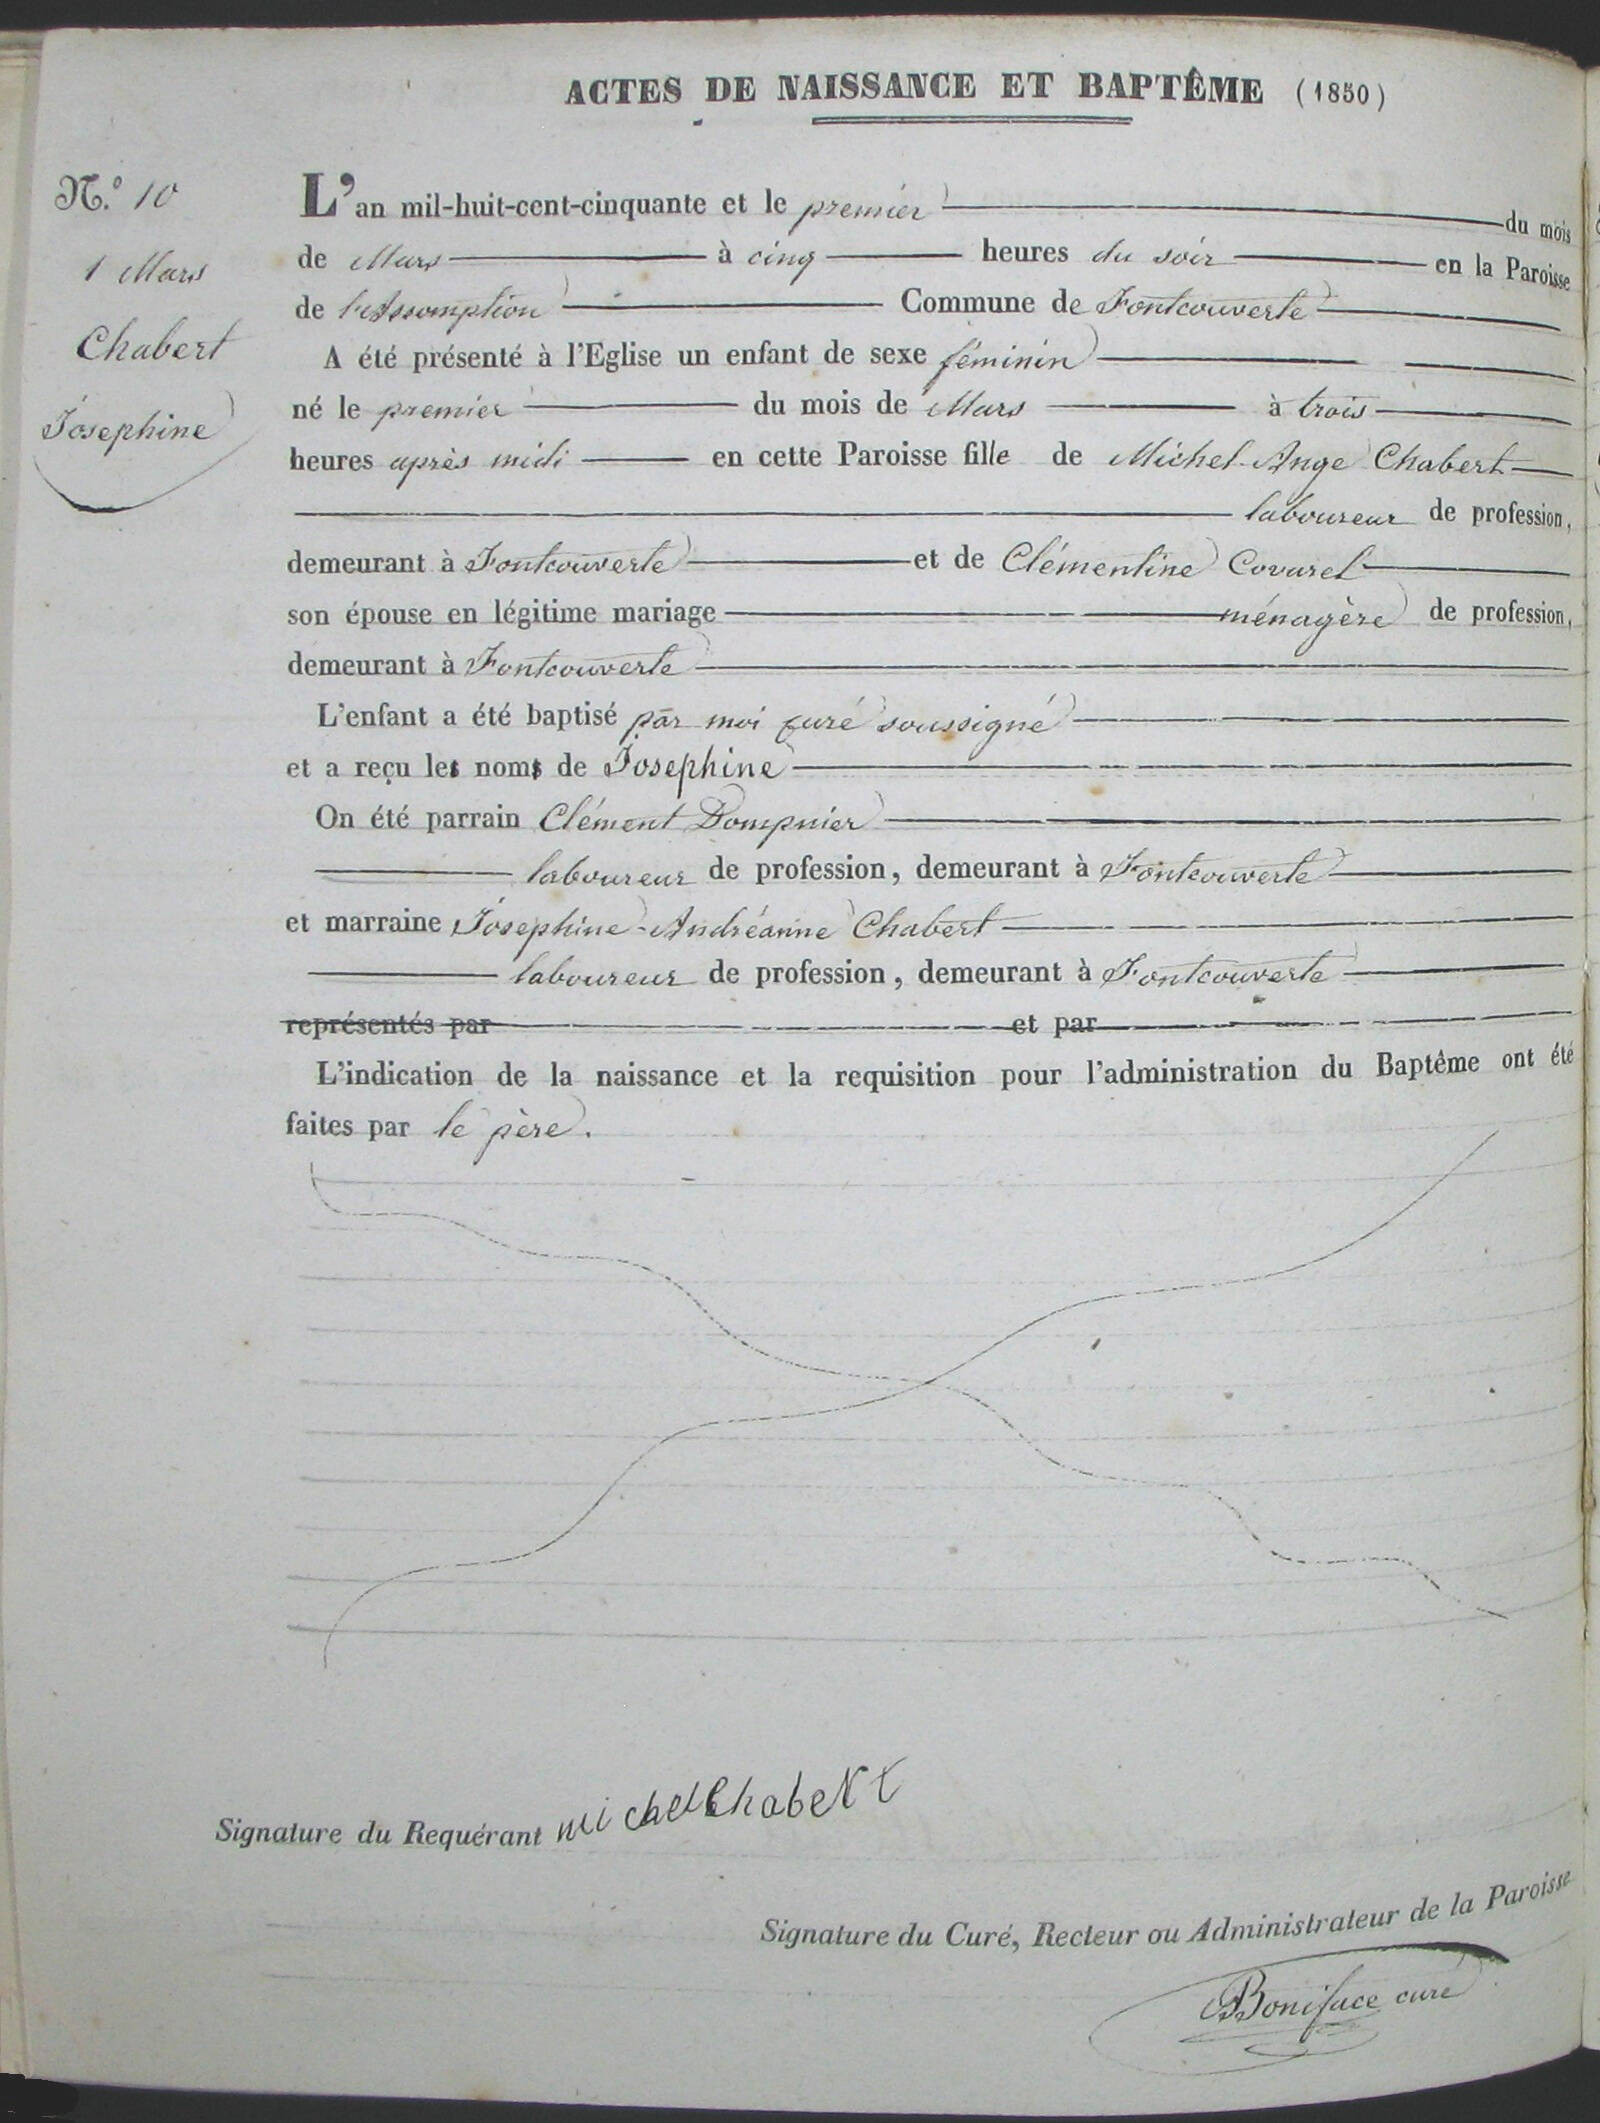 ACTES DE NAISSANCE ET BAPTÊME (1850)
N.º 10
1 Mars
Chabert
Josephine
L'an mil-huit-cent-cinquante et le premier du mois
de Mars à cinq heures du soir en la Paroisse
de l'Assomption Commune de Fontcouverte
A été présenté à l'Eglise un enfant de sexe féminin
né le premier du mois de Mars à trois
heures après midi en cette Paroisse fille de Michel-Ange Chabert
laboureur de profession,
demeurant à Fontcouverte et de Clémentine Covarel
son épouse en légitime mariage ménagère de profession,
demeurant à Fontcouverte
L'enfant a été baptisé par moi curé soussigné
et a reçu les noms de Josephine
On été parrain Clément Dompnier
laboureur de profession, demeurant à Fontcouverte
et marraine Josephine-Andréanne Chabert
laboureur de profession, demeurant à Fontcouverte
représentés par et par
L'indication de la naissance et la requisition pour l'administration du Baptême ont été
faites par le père.
Signature du Requérant michel Chabert
Signature du Curé, Recteur ou Administrateur de la Paroisse
Boniface curé